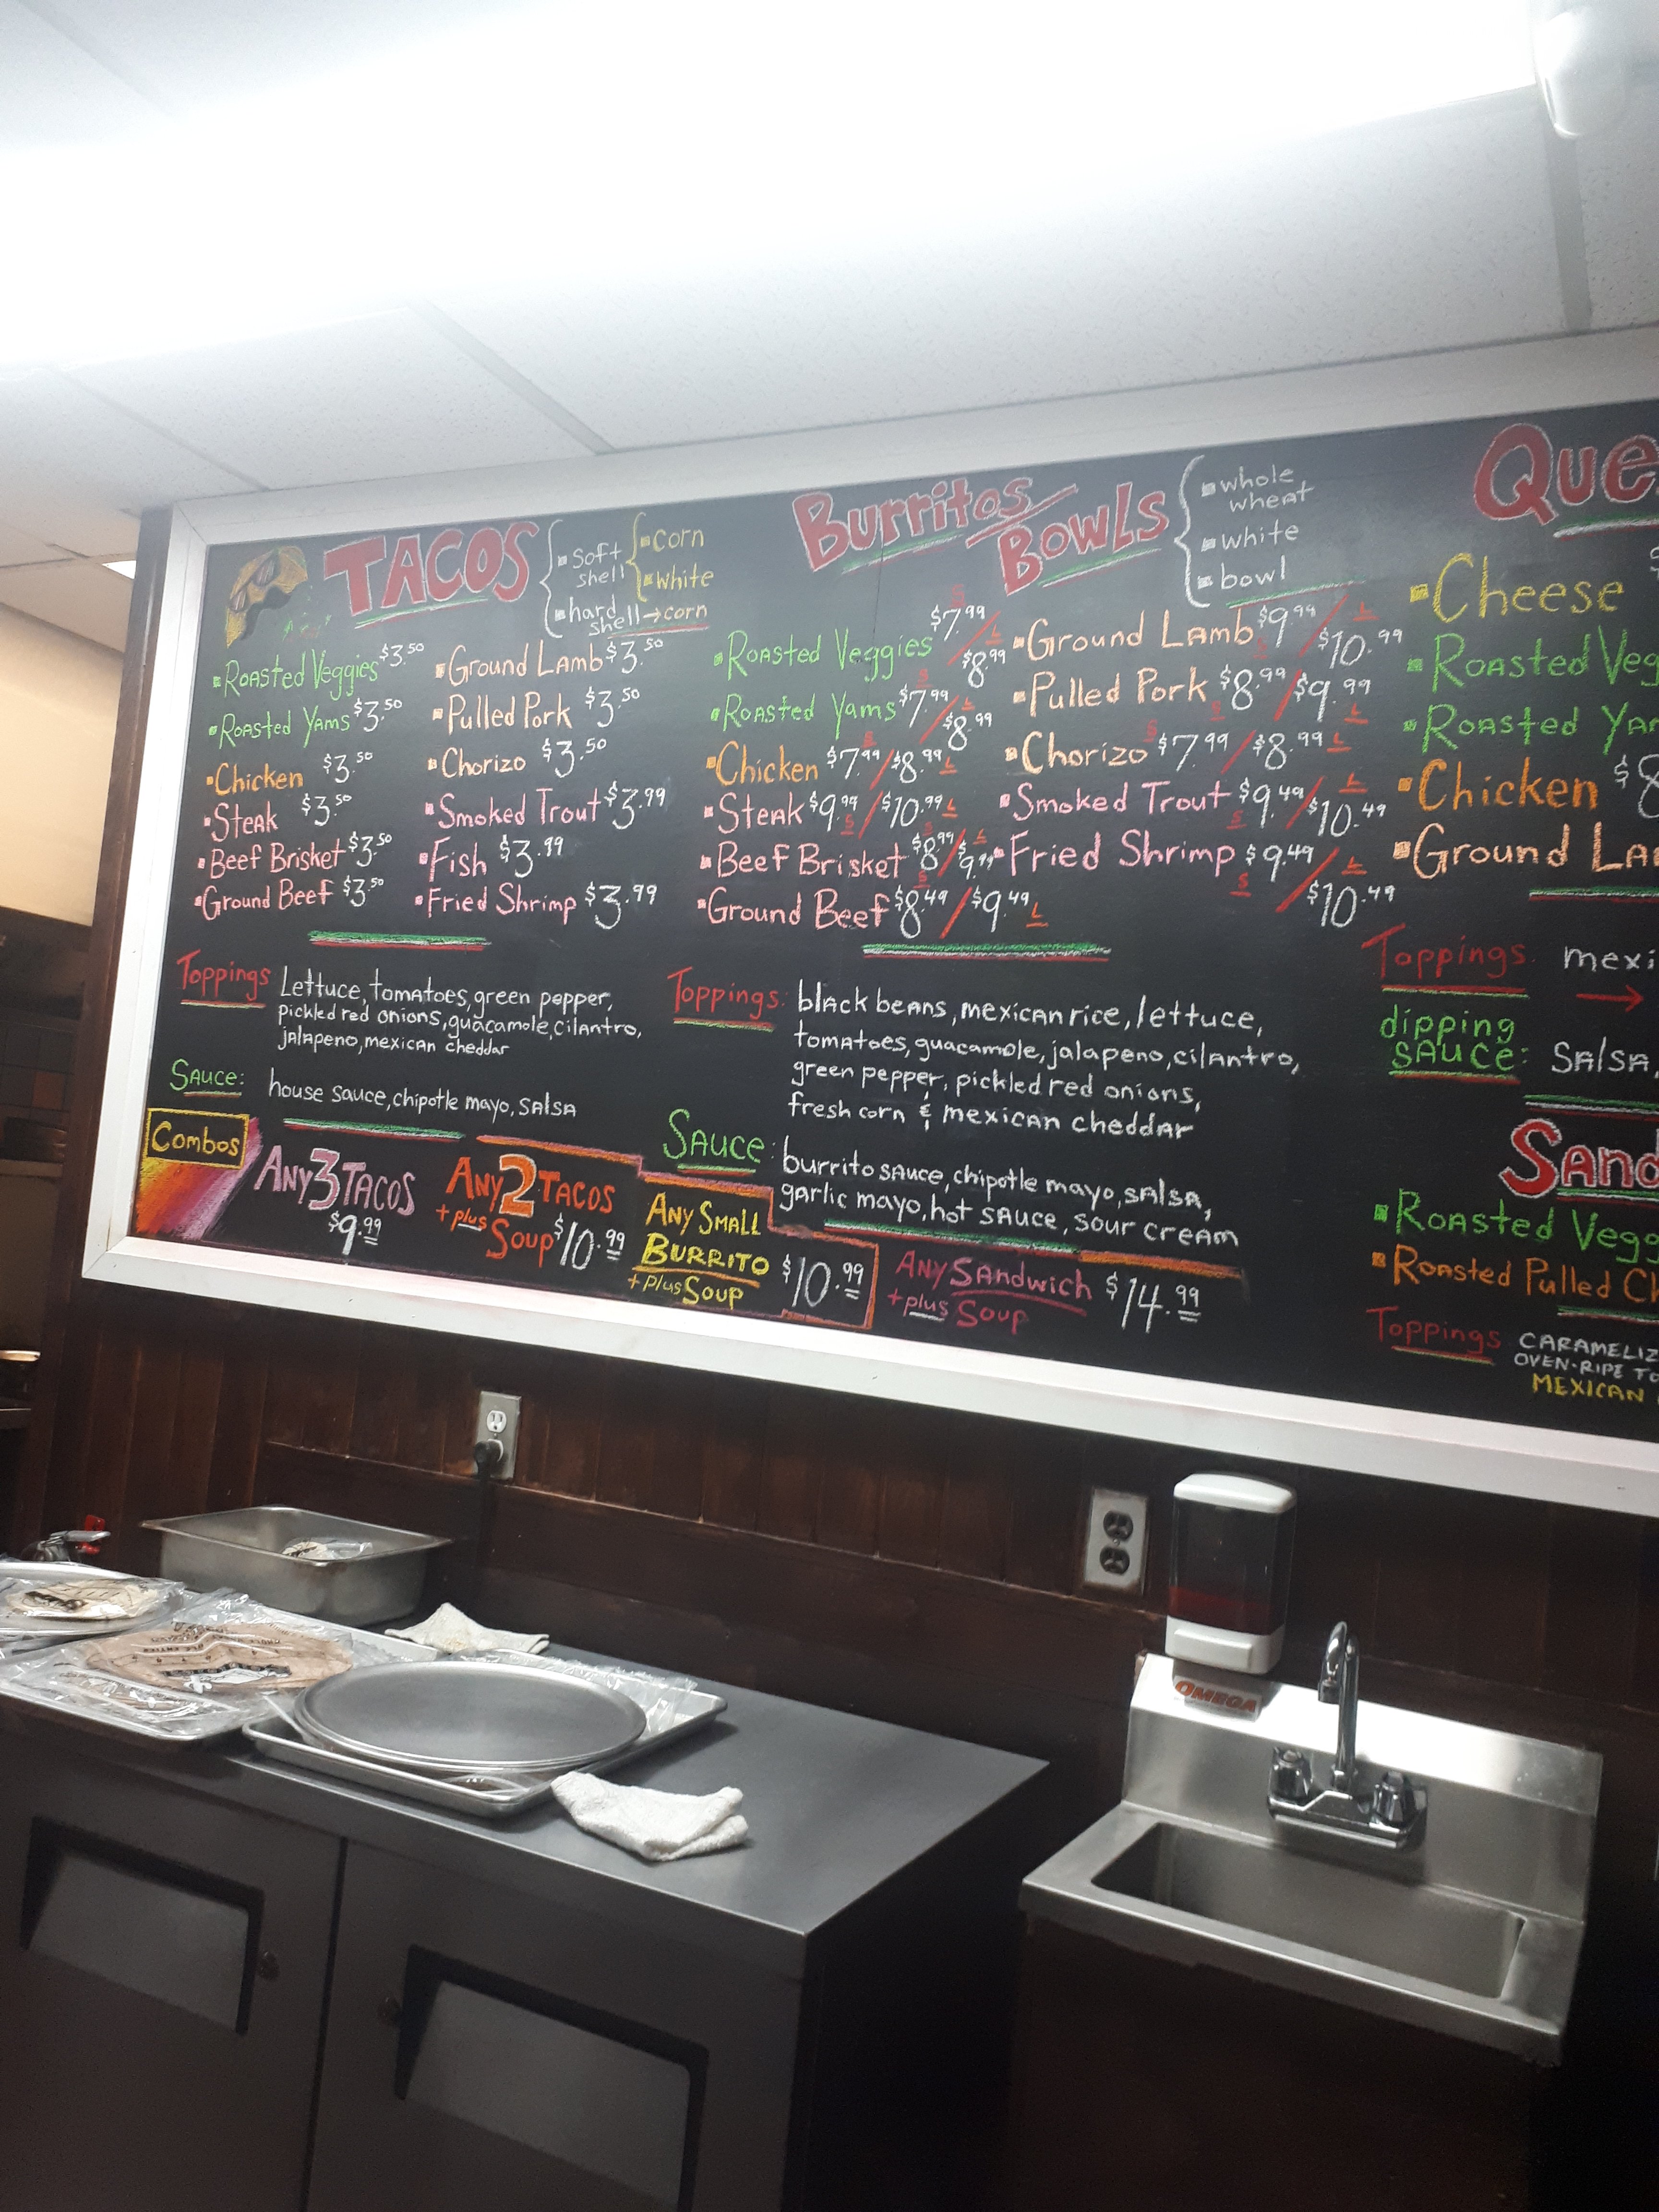 TACOS
soft shell
corn
white
hard shell → corn
Roasted Veggies $3.50
Roasted Yams $3.50
Chicken $3.50
Steak $3.50
Beef Brisket $3.50
Ground Beef $3.50
Ground Lamb $3.50
Pulled Pork $3.50
Chorizo $3.50
Smoked Trout $3.99
Fish $3.99
Fried Shrimp $3.99
Toppings Lettuce, tomatoes, green pepper,
pickled red onions, guacamole, cilantro,
jalapeno, mexican cheddar
Sauce: house sauce, chipotle mayo, salsa
Combos
Any 3 Tacos
$9.99
Any 2 Tacos
+ plus Soup $10.99
Any Small
Burrito
+ plus Soup
$10.99
Any Sandwich
+ plus Soup
$14.99
Burritos/
Bowls
whole
wheat
white
bowl
Roasted Veggies S $7.99 / L $8.99
Roasted Yams S $7.99 / L $8.99
Chicken S $7.99 / $8.99 L
Steak $9.99 S / $10.99 L
Beef Brisket S $8.99 / L $9.99
Ground Beef S $8.49 / $9.49 L
Ground Lamb $9.99 S / L $10.99
Pulled Pork $8.99 S / $9.99 L
Chorizo S $7.99 / $8.99 L
Smoked Trout $9.49 S / L $10.49
Fried Shrimp $9.49 S / L $10.49
Toppings: black beans, mexican rice, lettuce,
tomatoes, guacamole, jalapeno, cilantro,
green pepper, pickled red onions,
fresh corn & mexican cheddar
Sauce: burrito sauce, chipotle mayo, salsa,
garlic mayo, hot sauce, sour cream
Que
Cheese $
Roasted Veg
Roasted Yam
Chicken $8
Ground La
Toppings: mexi
→
dipping
sauce: Salsa,
Sand
Roasted Vegg
Roasted Pulled Ch
Toppings CARAMELIZ
OVEN-RIPE TO
MEXICAN
OMEGA